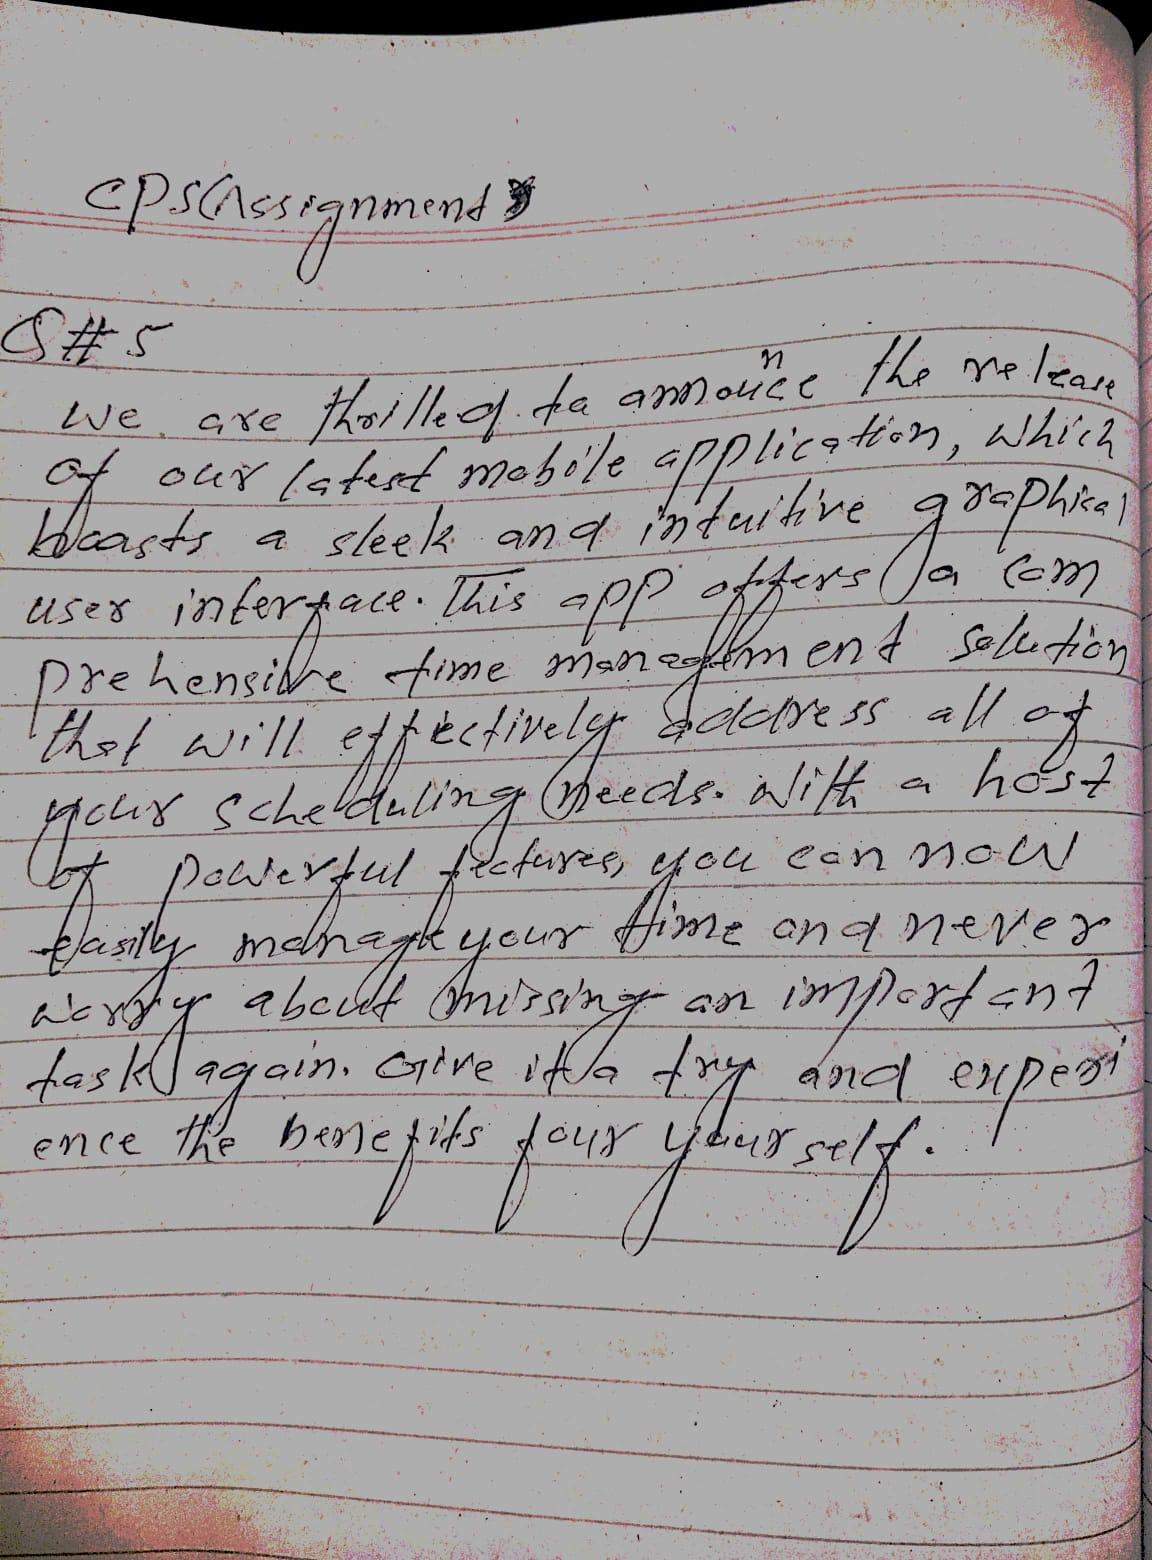 CPS(Assignment
Q#5
We are thrilled to announce the release
of our latest mobile application, which
boasts a sleek and intuitive graphical
user interface. This app offers a com
prehensive time management solution
that will effectively address all of
your scheduling needs. With a host
of powerful features, you can now
easily manage your time and never
worry about missing an important
task again. Give it a try and experi
ence the benefits four yourself.